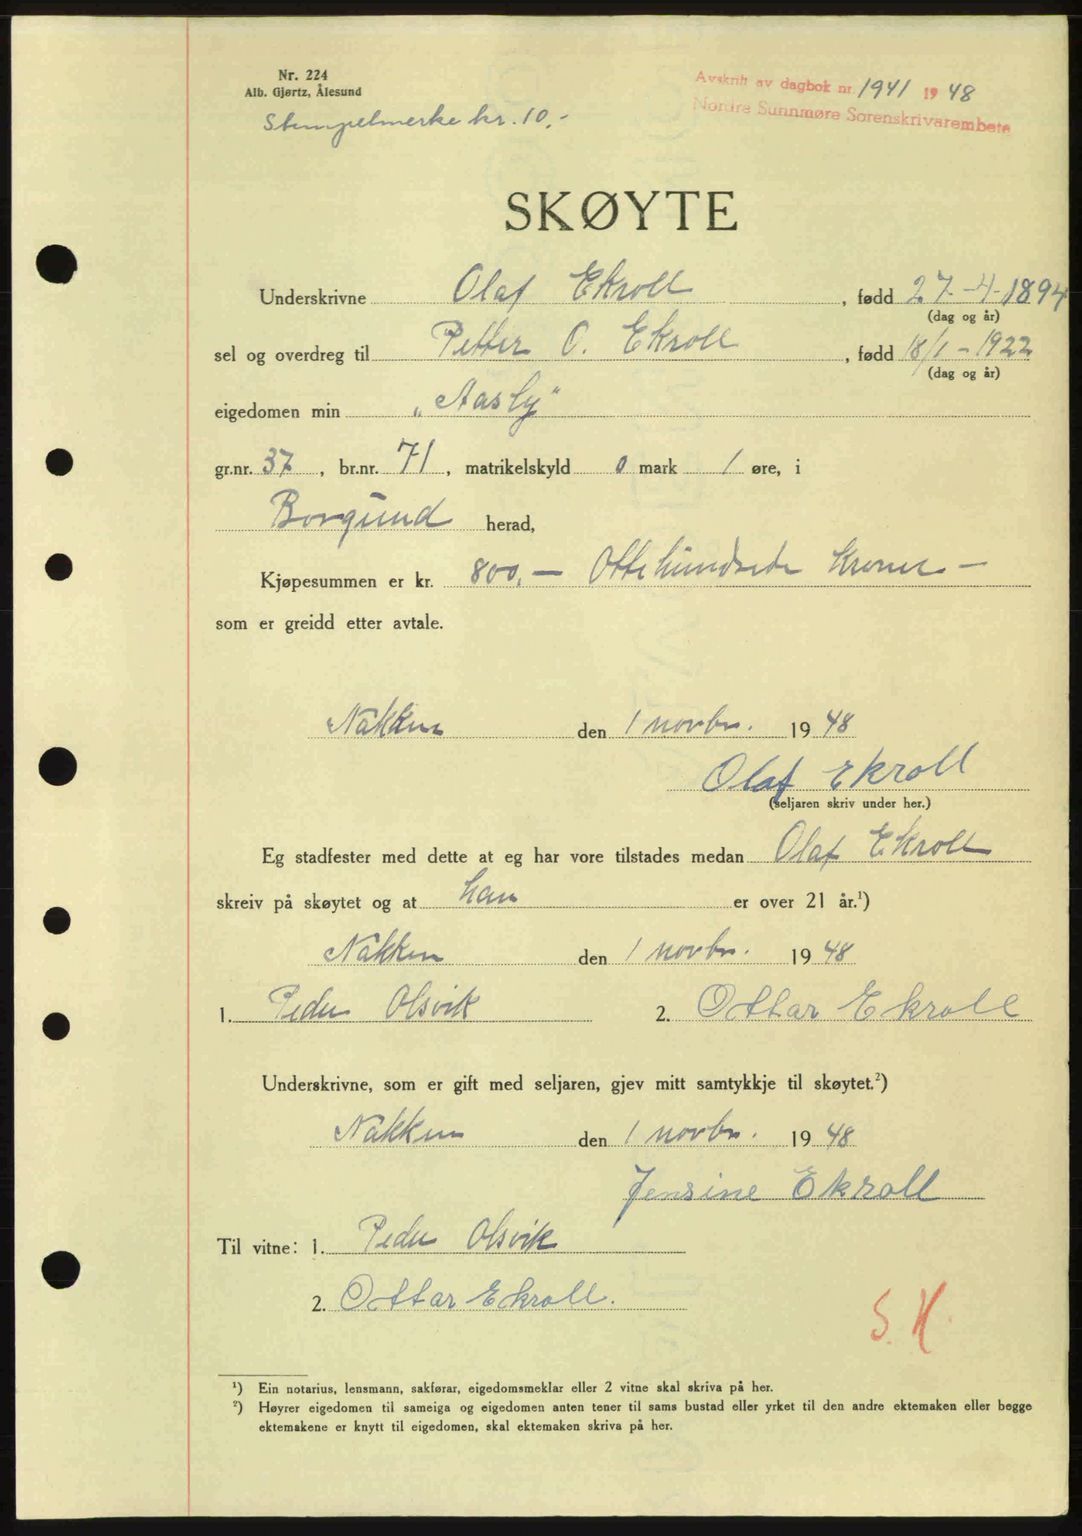 Nr. 224
Alb. Gjørtz, Ålesund
Stempelmerke kr. 10,-
Avskrift av dagbok nr. 1941 1948
Nordre Sunnmøre Sorenskrivarembete
SKØYTE
Underskrivne Olaf Ekroll, fødd 27-4-1894
(dag og år)
sel og overdreg til Petter O. Ekroll, fødd 18/1-1922
(dag og år)
eigedomen min „Aasly“
gr.nr. 37, br.nr. 71, matrikelskyld 0 mark 1 øre, i
Borgund herad,
Kjøpesummen er kr. 800,- Ottehundrede kroner -
som er greidd etter avtale.
Nakken den 1 novbr. 1948
Olaf Ekroll
(seljaren skriv under her.)
Eg stadfester med dette at eg har vore tilstades medan Olaf Ekroll
skreiv på skøytet og at han er over 21 år.¹)
Nakken den 1 novbr. 1948
1. Peder Olsvik 2. Ottar Ekroll
Underskrivne, som er gift med seljaren, gjev mitt samtykkje til skøytet.²)
Nakken den 1 novbr. 1948
Jensine Ekroll
Til vitne: 1. Peder Olsvik
2. Ottar Ekroll.
S.H.
¹) Ein notarius, lensmann, sakførar, eigedomsmeklar eller 2 vitne skal skriva på her.
²) Høyrer eigedomen til sameiga og eigedomen anten tener til sams bustad eller yrket til den andre ektemaken eller begge
ektemakene er knytt til eigedomen, skal ektemaken skriva på her.